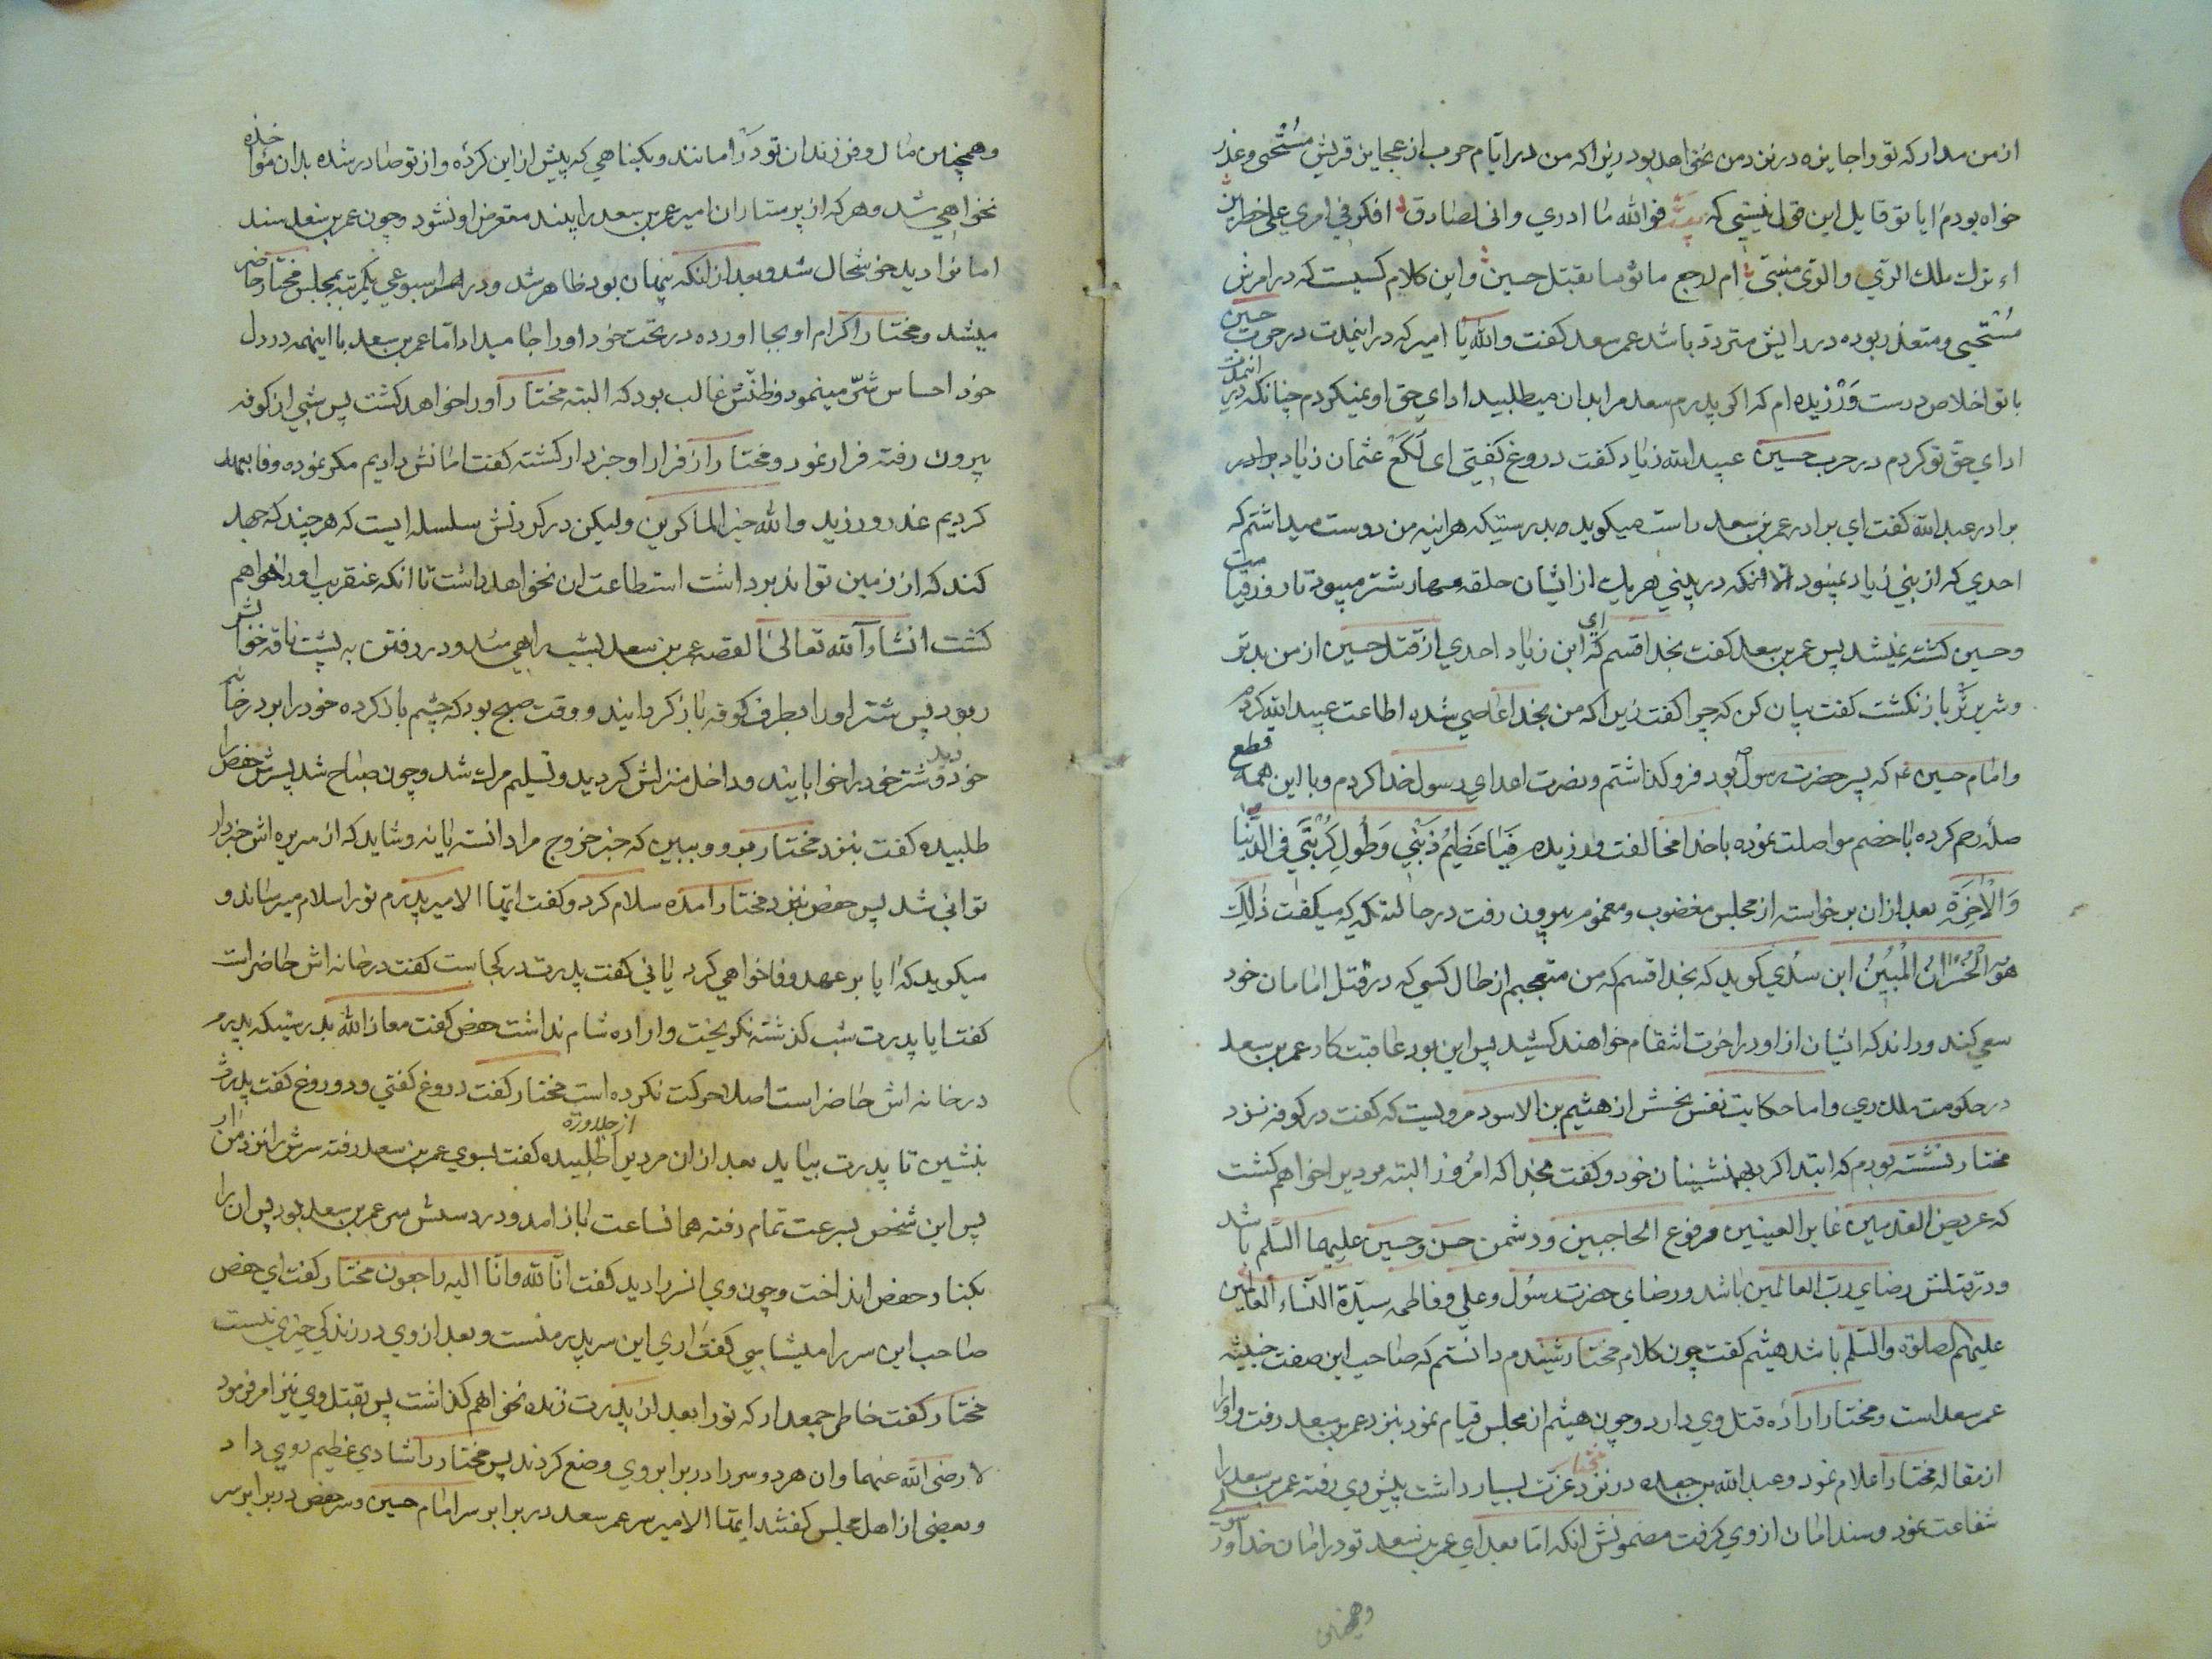 از من مدار که تو را جایزه در نزد من نخواهد بود زیرا که من در ایام حرب از عجایز قریش مستحیی و عذر
خواه بودم ایا تو قایل این قول نیستی که فوالله ما ادری وانی لصادق افکر فی امری علی خطرین
اء ترک ملک الری والری منیتی ام ارجع ماثوما بقتل حسین و این کلام کسیست که در امرش
مستحیی و متعذر بوده در رایش متردد باشد عمر سعد کفت والله یا امیر که در اینمدت در حرب حسین
با تو اخلاص درست ورزیده ام که اکر پدرم سعد مرا بدان میطلبید ادای حق او نمیکردم چنانکه در اینمدت
ادای حق تو کردم در حرب حسین عبید الله زیاد کفت دروغ کفتی ای لکع عثمان زیاد برادر
برادر عبدالله کفت ای برادر عمر بن سعد راست میکوید بدرستیکه هراینه من دوست میداشتم که
احدی که از بنی زیاد نمیبود الا انکه در بینی هر یک از ایشان حلقه مهار شتر میبود تا روز قیامت
و حسین کشته نمیشد پس عمر بن سعد کفت بخدا قسم که ای ابن زیاد احدی از قتل حسین از من بدتر
و شریرتر باز نکشت کفت بیان کن که چرا کفت زیرا که من بخدا عاصی شده اطاعت عبید الله کردم
و امام حسین ع که پسر حضرت رسول بود فرو کذاشتم و نصرت اعدای رسول خدا کردم و با این همه قطع
صله رحم کرده با خصم مواصلت نموده با خدا مخالفت ورزیده فیا عظیم ذنبی و طول کربتی فی الدنیا
والاخرة بعد از ان برخواسته از مجلس مغضوب و مغموم بیرون رفت در حالتیکه میکفت ذلک
هو الخسران المبین ابن سدی کوید که بخدا قسم که من متعجبم از حال کسی که در قتل امامان خود
سعی کند و داند که ایشان از او در اخرت انتقام خواهند کشید پس این بود عاقبت کار عمر بن سعد
در حکومت ملک ری و اما حکایت نفس نحسش از هشیم بن الاسود مرویست که کفت در کوفه نزد
مختار نشسته بودم که ابتدا کرد بهمنشینان خود و کفت بخدا که امروز البته مردیرا خواهم کشت
که عریض القدمین غایر العینین مرفوع الحاجبین و دشمن حسن و حسین علیهما السلم باشد
و در قتلش رضای رب العالمین باشد و رضای حضرت رسول و علی و فاطمه سیدة النساء العالمین
علیهم الصلوة والسلم باشد هیثم کفت چون کلام مختار شنیدم دانستم که صاحب این صفت خبیثه
عمر سعد است و مختار اراده قتل وی دارد و چون هیثم از مجلس قیام نمود بنزد عمر بن سعد رفت و او را
از مقاله مختار اعلام نمود و عبدالله بن جعده در نزد مختار عزت بسیار داشت پیش وی رفته عمر بن سعد را
شفاعت نمود و سند امان از وی کرفت مضمونش انکه اما بعد ای عمر بن سعد تو در امان خدا و
وهمچنین
وهمچنین مال و فرزندان تو در امانند و بکناهی که پیش از این کرده و از تو صادر شده بدان مؤاخذه
نخواهی شد و هر که از پرستاران امیر عمر بن سعد را بیند متعرض او نشود و چون عمر بن سعد سند
امانرا دید خوشحال شد و بعد از انکه پنهان بود ظاهر شد و در هر اسبوعی یکمرتبه بمجلس مختار حاضر
میشد و مختار اکرام او بجا اورده در تخت خود او را جا میداد اما عمر بن سعد با اینهمه در دل
خود احساس شر مینمود و ظنش غالب بود که البته مختار او را خواهد کشت پس شبی از کوفه
بیرون رفته فرار نمود و مختار از فرار او خبردار کشته کفت امانش دادیم مکر نموده وفا بعهد
کردیم غدر ورزید والله خیر الماکرین ولیکن در کردنش سلسله ایست که هر چند که جهد
کند که از زمین تواند برداشت استطاعت ان نخواهد داشت تا انکه عنقریب او را خواهم
کشت انشاء الله تعالی القصه عمر بن سعد لیلا راهی شد و در رفتن به پشت ناقه خوابش
ربود پس شتر او را بطرف کوفه باز کردانید و وقت صبح بود که چشم باز کرده خود را بدر خانه
خود دید و شتر خود را خوابانید و داخل منزلش کردید و تسلیم مرک شد و چون صباح شد پسرش حفص را
طلبیده کفت بنزد مختار برو و ببین که خبر خروج مرا دانسته یا نه و شاید که از سریره اش خبردار
توانی شد پس حفص بنزد مختار امده سلام کرد و کفت ایها الامیر پدرم تو را سلام میرساند و
میکوید که ایا بر عهد وفا خواهی کرد یا نی کفت پدرت در کجاست کفت در خانه اش حاضر است
کفت ایا پدرت شب کذشته نکریخت و اراده شام نداشت حفص کفت معاذ الله بدرستیکه پدرم
در خانه اش حاضر است اصلا حرکت نکرده است مختار کفت دروغ کفتی و دروغ کفت پدرت
بنشین تا پدرت بیاید بعد از ان مردیرا از جلاوزه طلبیده کفت بسوی عمر بن سعد رفته سرش را نزد من ار
پس این شخص بسرعت تمام رفته همانساعت باز امد و در دستش سر عمر بن سعد بود پس ان را
بکنار حفص انداخت و چون وی انسر را دید کفت انا لله وانا الیه راجعون مختار کفت ای حفص
صاحب این سر را میشناسی کفت اری این سر پدر منست و بعد از وی در زندکی خیری نیست
مختار کفت خاطر جمعدار که تو را بعد از پدرت زنده نخواهم کذاشت پس بقتل وی نیز امر فرمود
لا رضی الله عنهما و ان هر دو سر را در برابر وی وضع کردند پس مختار را شادی عظیم روی داد
و بعضی از اهل مجلس کفتند ایها الامیر سر عمر سعد در برابر سر امام حسین و سر حفص در برابر سر